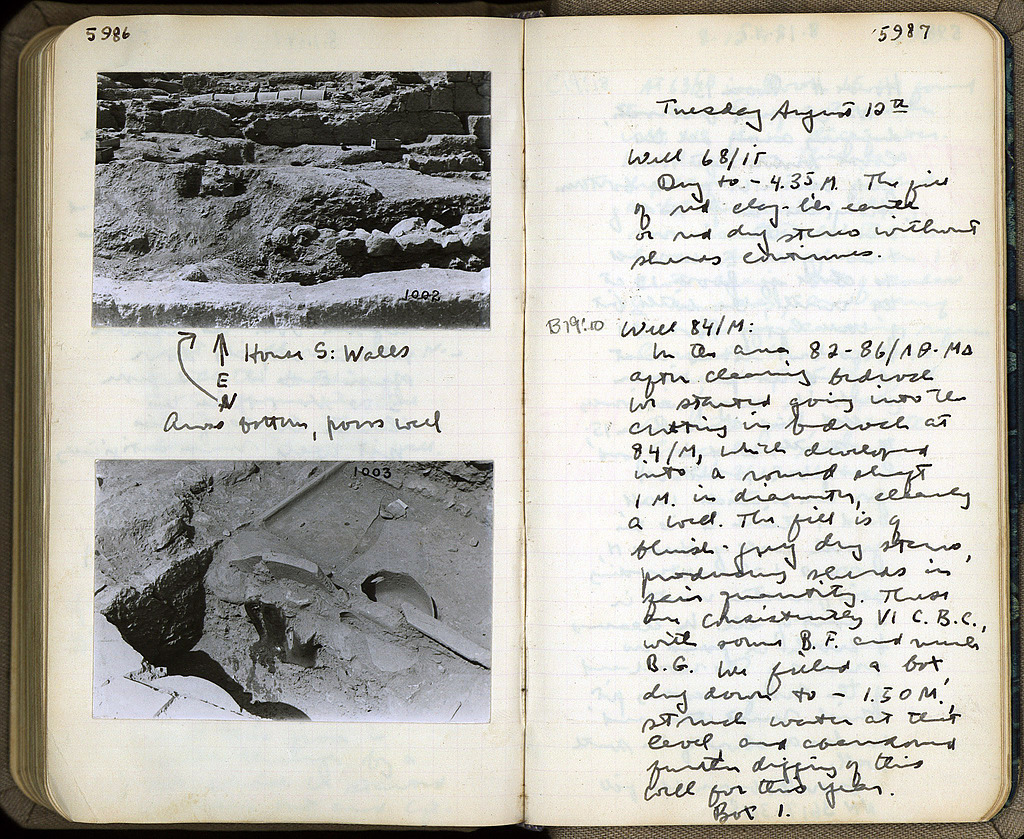 5986
1002
House S: Walls
E
N
Across bottom, poros wall
1003
5987
Tuesday August 12th
Well 68/ΙΕ
Dug to - 4.35 M. The fill
of red clay-like earth
or red dug stereo without
sherds continues.
B79:10 Well 84/Μ:
In the area 82-86/ΛΘ-ΜΔ
after clearing bedrock
we started going into the
cutting in bedrock at
84/Μ, which developed
into a round shaft
1 M. in diameter, clearly
a well. The fill is of
bluish-grey dug stereo,
producing sherds in
fair quantity. These
are consistently VI C. B.C.,
with some B.F. and much
B.G. We filled a box,
dug down to - 1.50 M,
struck water at that
level, and abandoned
further digging of this
well for this year.
Box 1.